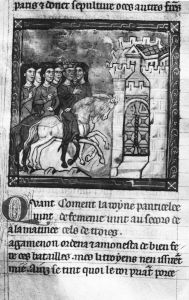 pans ⁊ doner sepulture
Ovant Coment la royne panticelee
vint de femenie vint au secors de
a la matinee cels de troies.
agamenon ordena ⁊ amonesta de bien fe
re ces batailles. mes li troyens nen issirent
mie. Ainz se tint quoi le roi priant porce